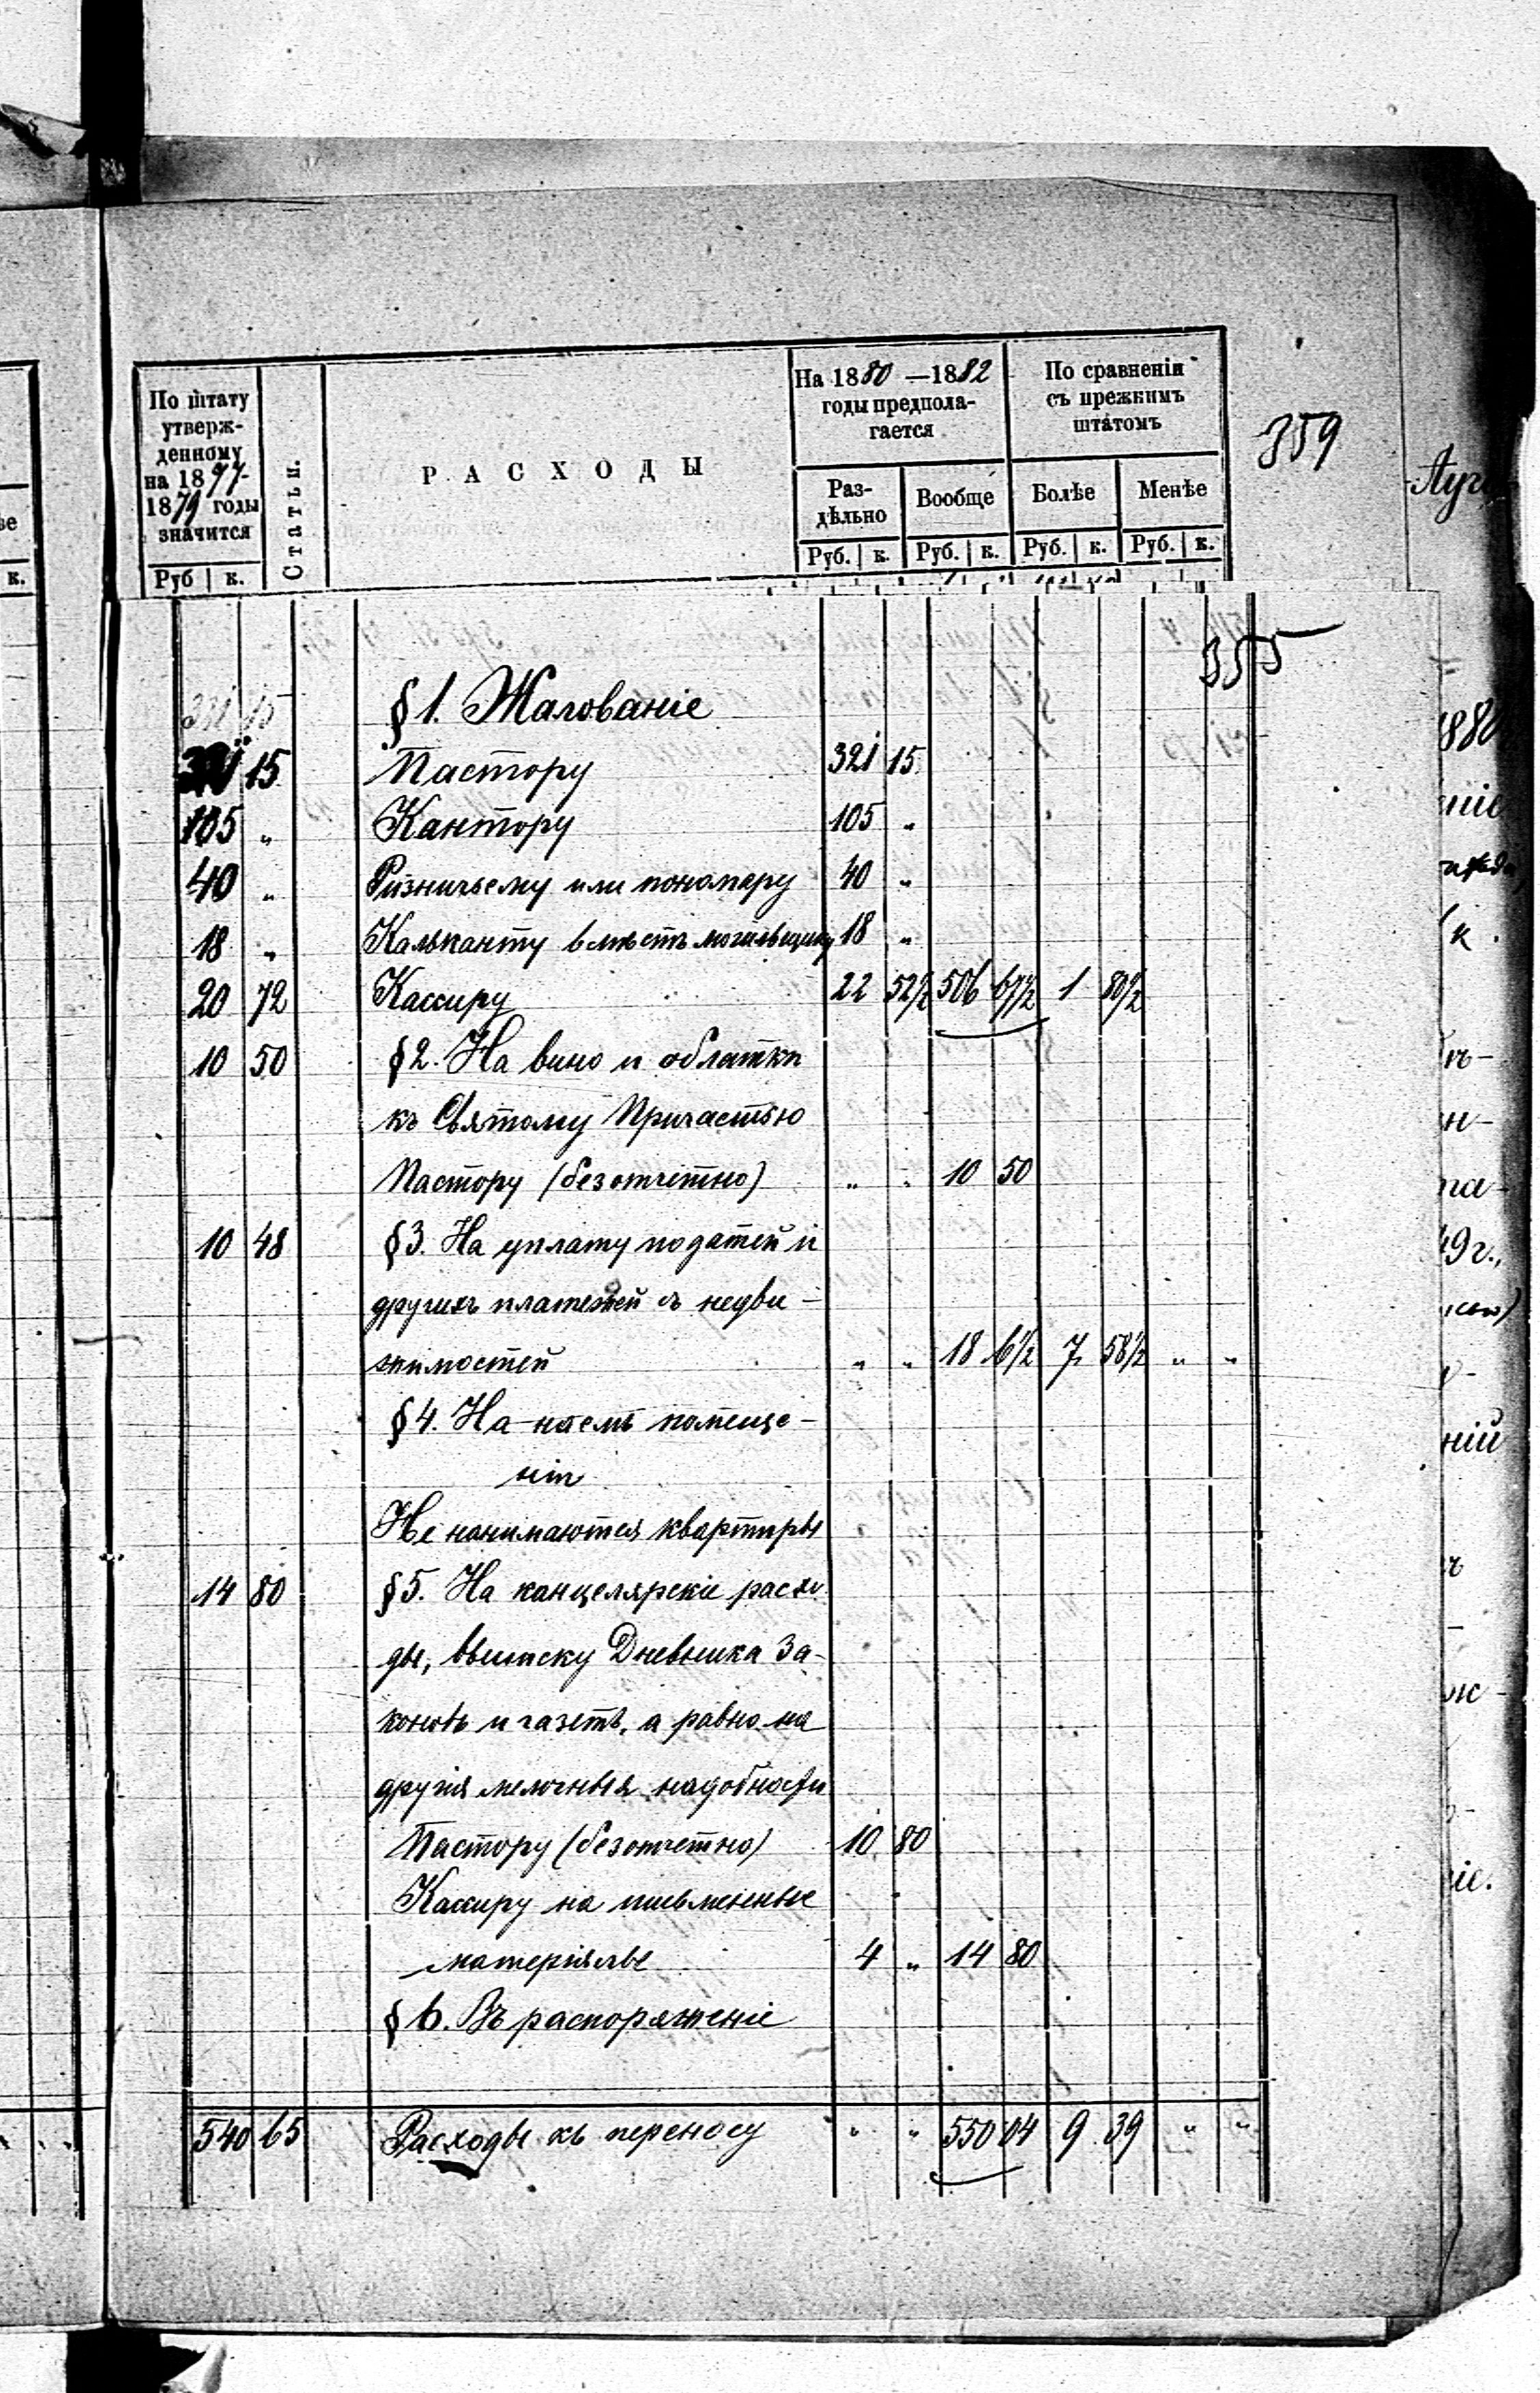 По штату утверж-денному на 1877-1879 годы значится
Руб | к.
Статьи.
РАСХОДЫ
На 1880 —1882 годы предпола-гается
Раз-дѣльно
Руб. | к.
Вообще
Руб. | к.
По сравненія съ прежнимъ штатомъ
Болѣе
Руб. | к.
Менѣе
Руб. | к.
359
355
§ 1. Жалованіе
321 15 Пастору 321 15
105 „ Кантору 105 „
40 „ Ризничьему или пономарю 40 „
18 „ Кальканту вместѣ могильщику 18 „
20 72 Кассиру 22 52½ 506 67½ 1 80½
10 50 § 2. На вино и облатки
къ Святому Причастью
Пастору (безотчетно) „ „ 10 50
10 48 § 3. На уплату податей и
другихъ платежей съ недви-
жимостей „ „ 18 6½ 7 58½ „ „
§ 4. На наемъ помеще-
нія
Не нанимаются квартиры
14 80 § 5. На канцелярскіе расхо-
ды, выписку Дневника За-
коновъ и газетъ, а равно на
другія мелочныя надобности
Пастору (безотчетно) 10 80
Кассиру на письменные
матеріялы 4 „ 14 80
§ 6. Въ распоряженіе
540 65 Расходы къ переносу „ „ 550 04 9 39 „ „